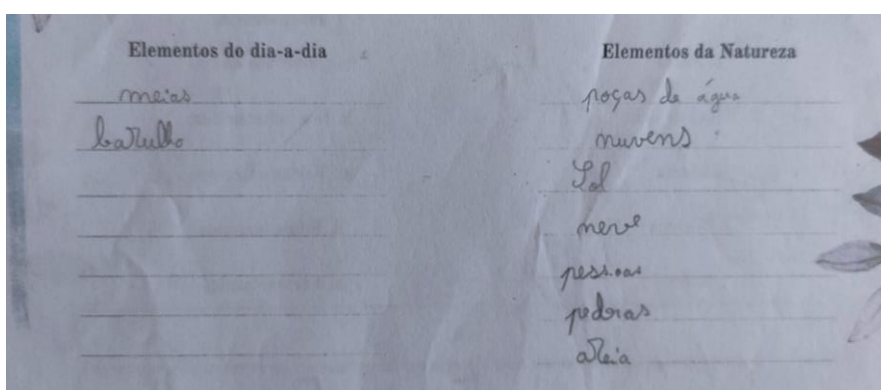 Elementos do dia-a-dia
meias
barulho
Elementos da Natureza
poças de água
nuvens
Sol
neve
pessoas
pedras
areia